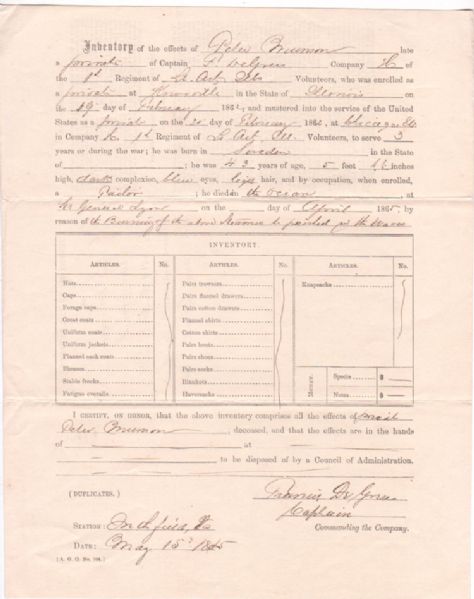 Inventory of the effects of Peter Brunson late
a private of Captain F. DeGress Company K of
the 1st Regiment of Lt. Art. Ills Volunteers, who was enrolled as
a private at in the State of Illinois on
the 19 day of February 186 , and mustered into the service of the United
States as a private on the day of February 186 , at Chicago Ills
in Company K 1st Regiment of Lt Art Ill. Volunteers, to serve 3
years or during the war; he was born in Sweden in the State
of ; he was 42 years of age, 5 feet inches
high, dark complexion, blue eyes, hair, and by occupation, when enrolled,
a ; he died in the ocean , at
General Lyon on the day of April 1865, by
reason of the Burning of the above Steamer he perished in the Waves
INVENTORY.
ARTICLES. No. ARTICLES. No. ARTICLES. No.
Hats Pairs trowsers Knapsacks
Caps Pairs flannel drawers
Forage caps Pairs cotton drawers
Great coats Flannel shirts
Uniform coats Cotton shirts
Uniform jackets Pairs boots
Flannel sack coats Pairs shoes
Blouses Pairs socks MONEY. Specie $
Stable frocks Blankets
Fatigue overalls Haversacks Notes $
I CERTIFY, ON HONOR, that the above inventory comprises all the effects of
Peter Brunson , deceased, and that the effects are in the hands
of at
to be disposed of by a Council of Administration.
(DUPLICATES.) Francis De Gress
Captain
STATION: Commanding the Company.
DATE: May 15 1865